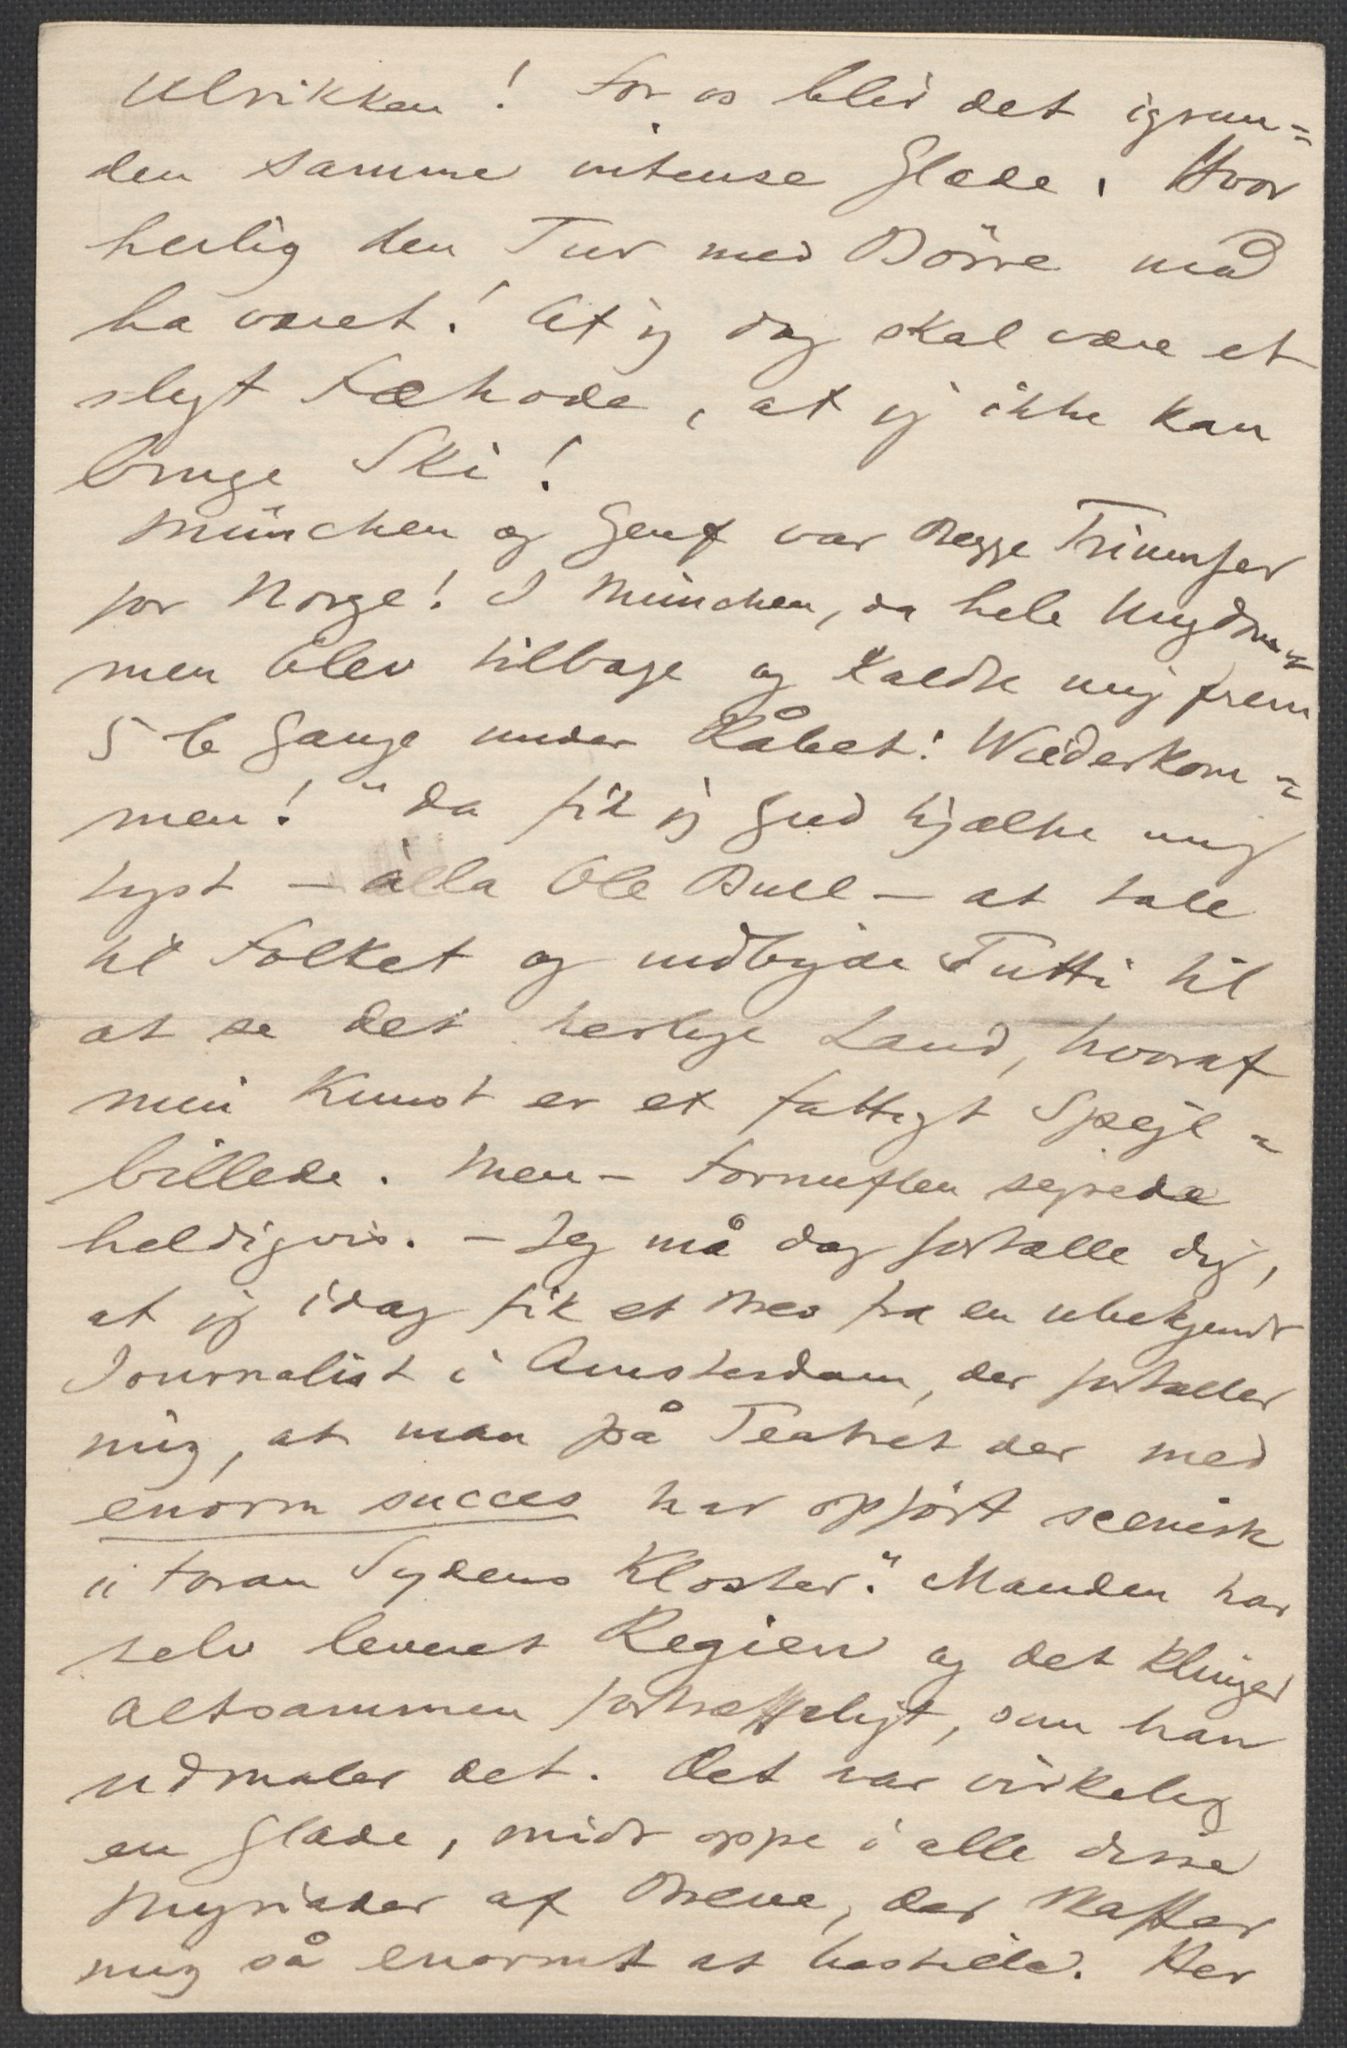 Ulrikken! For os blev det igrun=
den samme intense Glæde. Hvor
herlig den Tur med Börre må
ha været! At jeg dog skal være et
sligt Fæhode, at jeg ikke kan
bruge Ski!
München og Genf var begge Triumfer
for Norge! I München, da hele Ungdom=
men blev tilbage og kaldte mig frem
5 6 Gange under Råbet: Wiederkom=
men!" da fik jeg Gud hjælpe mig
Lyst – à la Ole Bull – at tale
til Folket og indbyde Tutti til
at se det herlige Land, hvoraf
min Kunst er et fattigt Spejl=
billede. Men – Fornuften sejrede
heldigvis. – Jeg må dog fortælle dig,
at jeg idag fik et Brev fra en ubekjendt
Journalist i Amsterdam, der fortæller
mig, at man på Teatret der med
enorm succes har opført scenisk
"Foran Sydens Kloster." Manden har
selv levert Regien og det klinger
altsammen fortræffeligt, som han
udmaler det. Det var virkelig
en Glæde, midt oppe i alle disse
Myriader af Breve, der skaffer
mig så enormt at bestille. Her